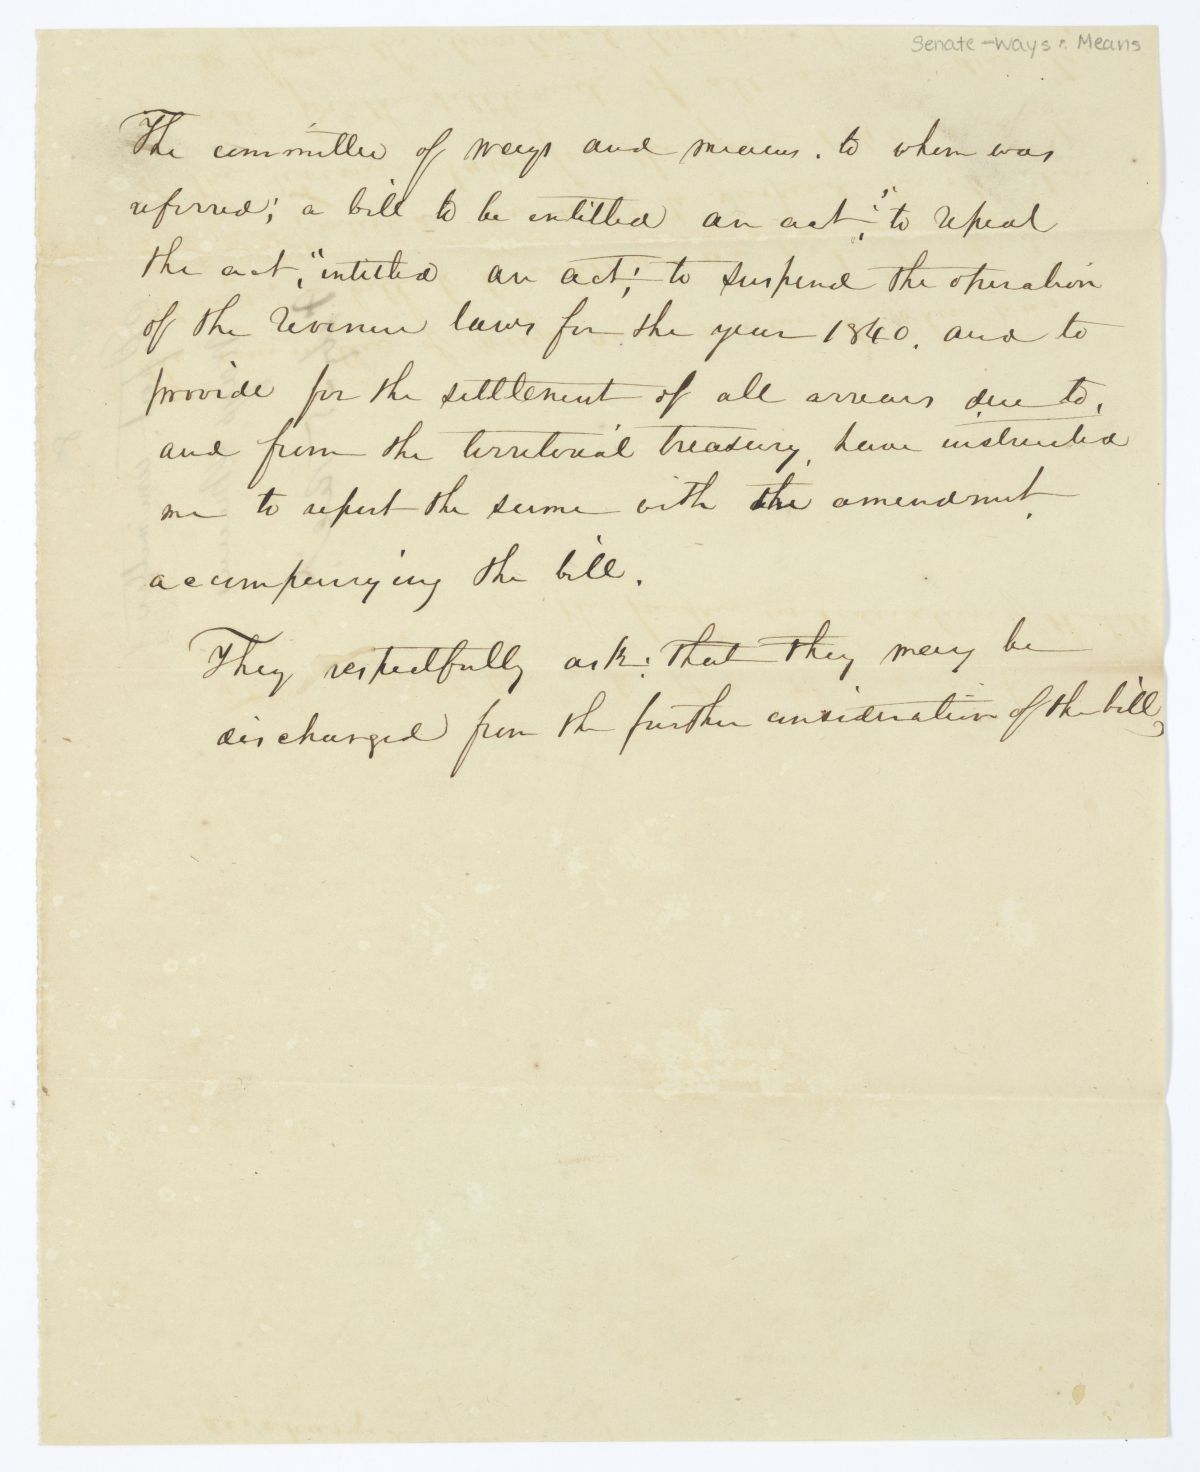 Senate - Ways & Means
The committee of ways and means. to whom was
referred; a bill to be entitled an act, "to repeal
the act, "intitled an act; to suspend the operation
of the revenue laws for the year 1840. and to
provide for the settlement of all arrears due to,
and from the territorial treasury, have instructed
me to report the same with the amendment,
accompanying the bill.
They respectfully ask; that they may be
discharged from the further consideration of the bill,